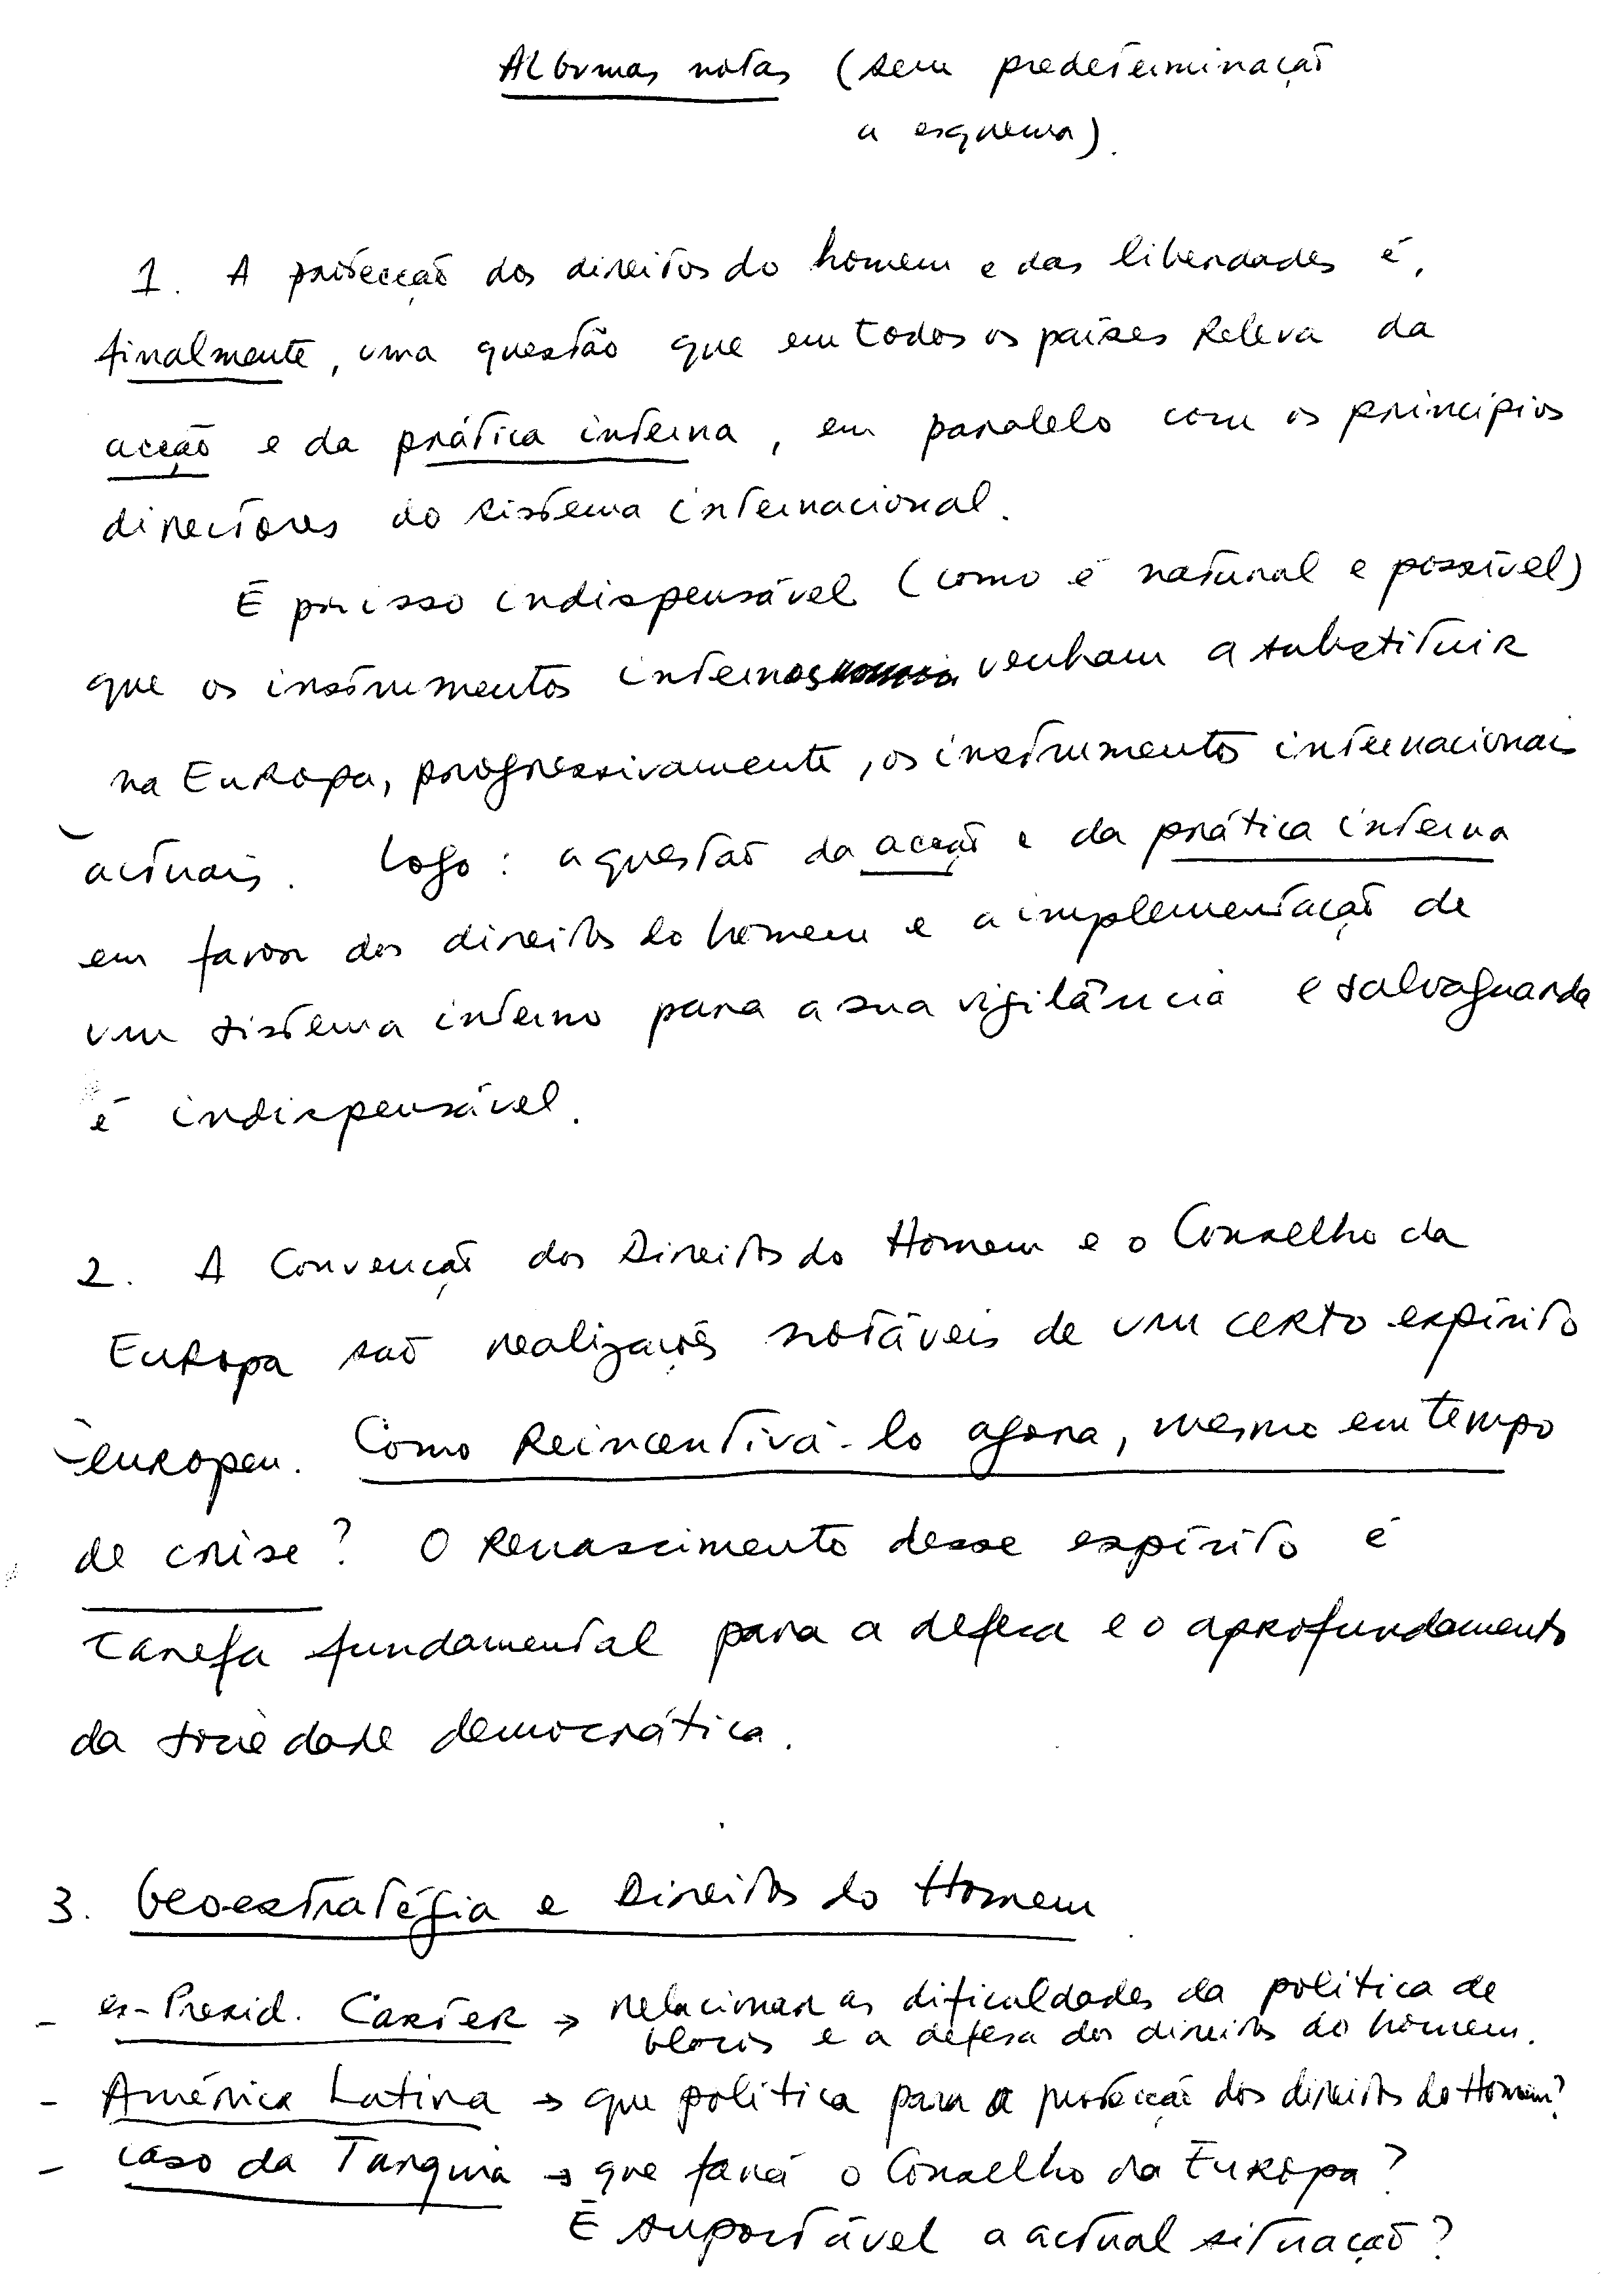 Algumas notas (sem predeterminação
a esquema).
1. A protecção dos direitos do homem e das liberdades é,
finalmente, uma questão que em todos os países releva da
acção e da prática interna, em paralelo com os princípios
directores do sistema internacional.
É por isso indispensável (como é natural e possível)
que os instrumentos internos venham a substituir
na Europa, progressivamente, os instrumentos internacionais
actuais. Logo: a questão da acção e da prática interna
em favor dos direitos do homem e a implementação de
um sistema interno para a sua vigilância e salvaguarda
é indispensável.
2. A Convenção dos Direitos do Homem e o Conselho da
Europa são realizações notáveis de um certo espírito
europeu. Como reincentivá-lo agora, mesmo em tempo
de crise? O renascimento desse espírito é
tarefa fundamental para a defesa e o aprofundamento
da sociedade democrática.
3. Geoestratégia e Direitos do Homem
- ex-Presid. Carter → relacionar as dificuldades da política de
blocos e a defesa dos direitos do homem.
- América Latina → que política para a protecção dos direitos do Homem?
- caso da Turquia → que fará o Conselho da Europa?
É suportável a actual situação?